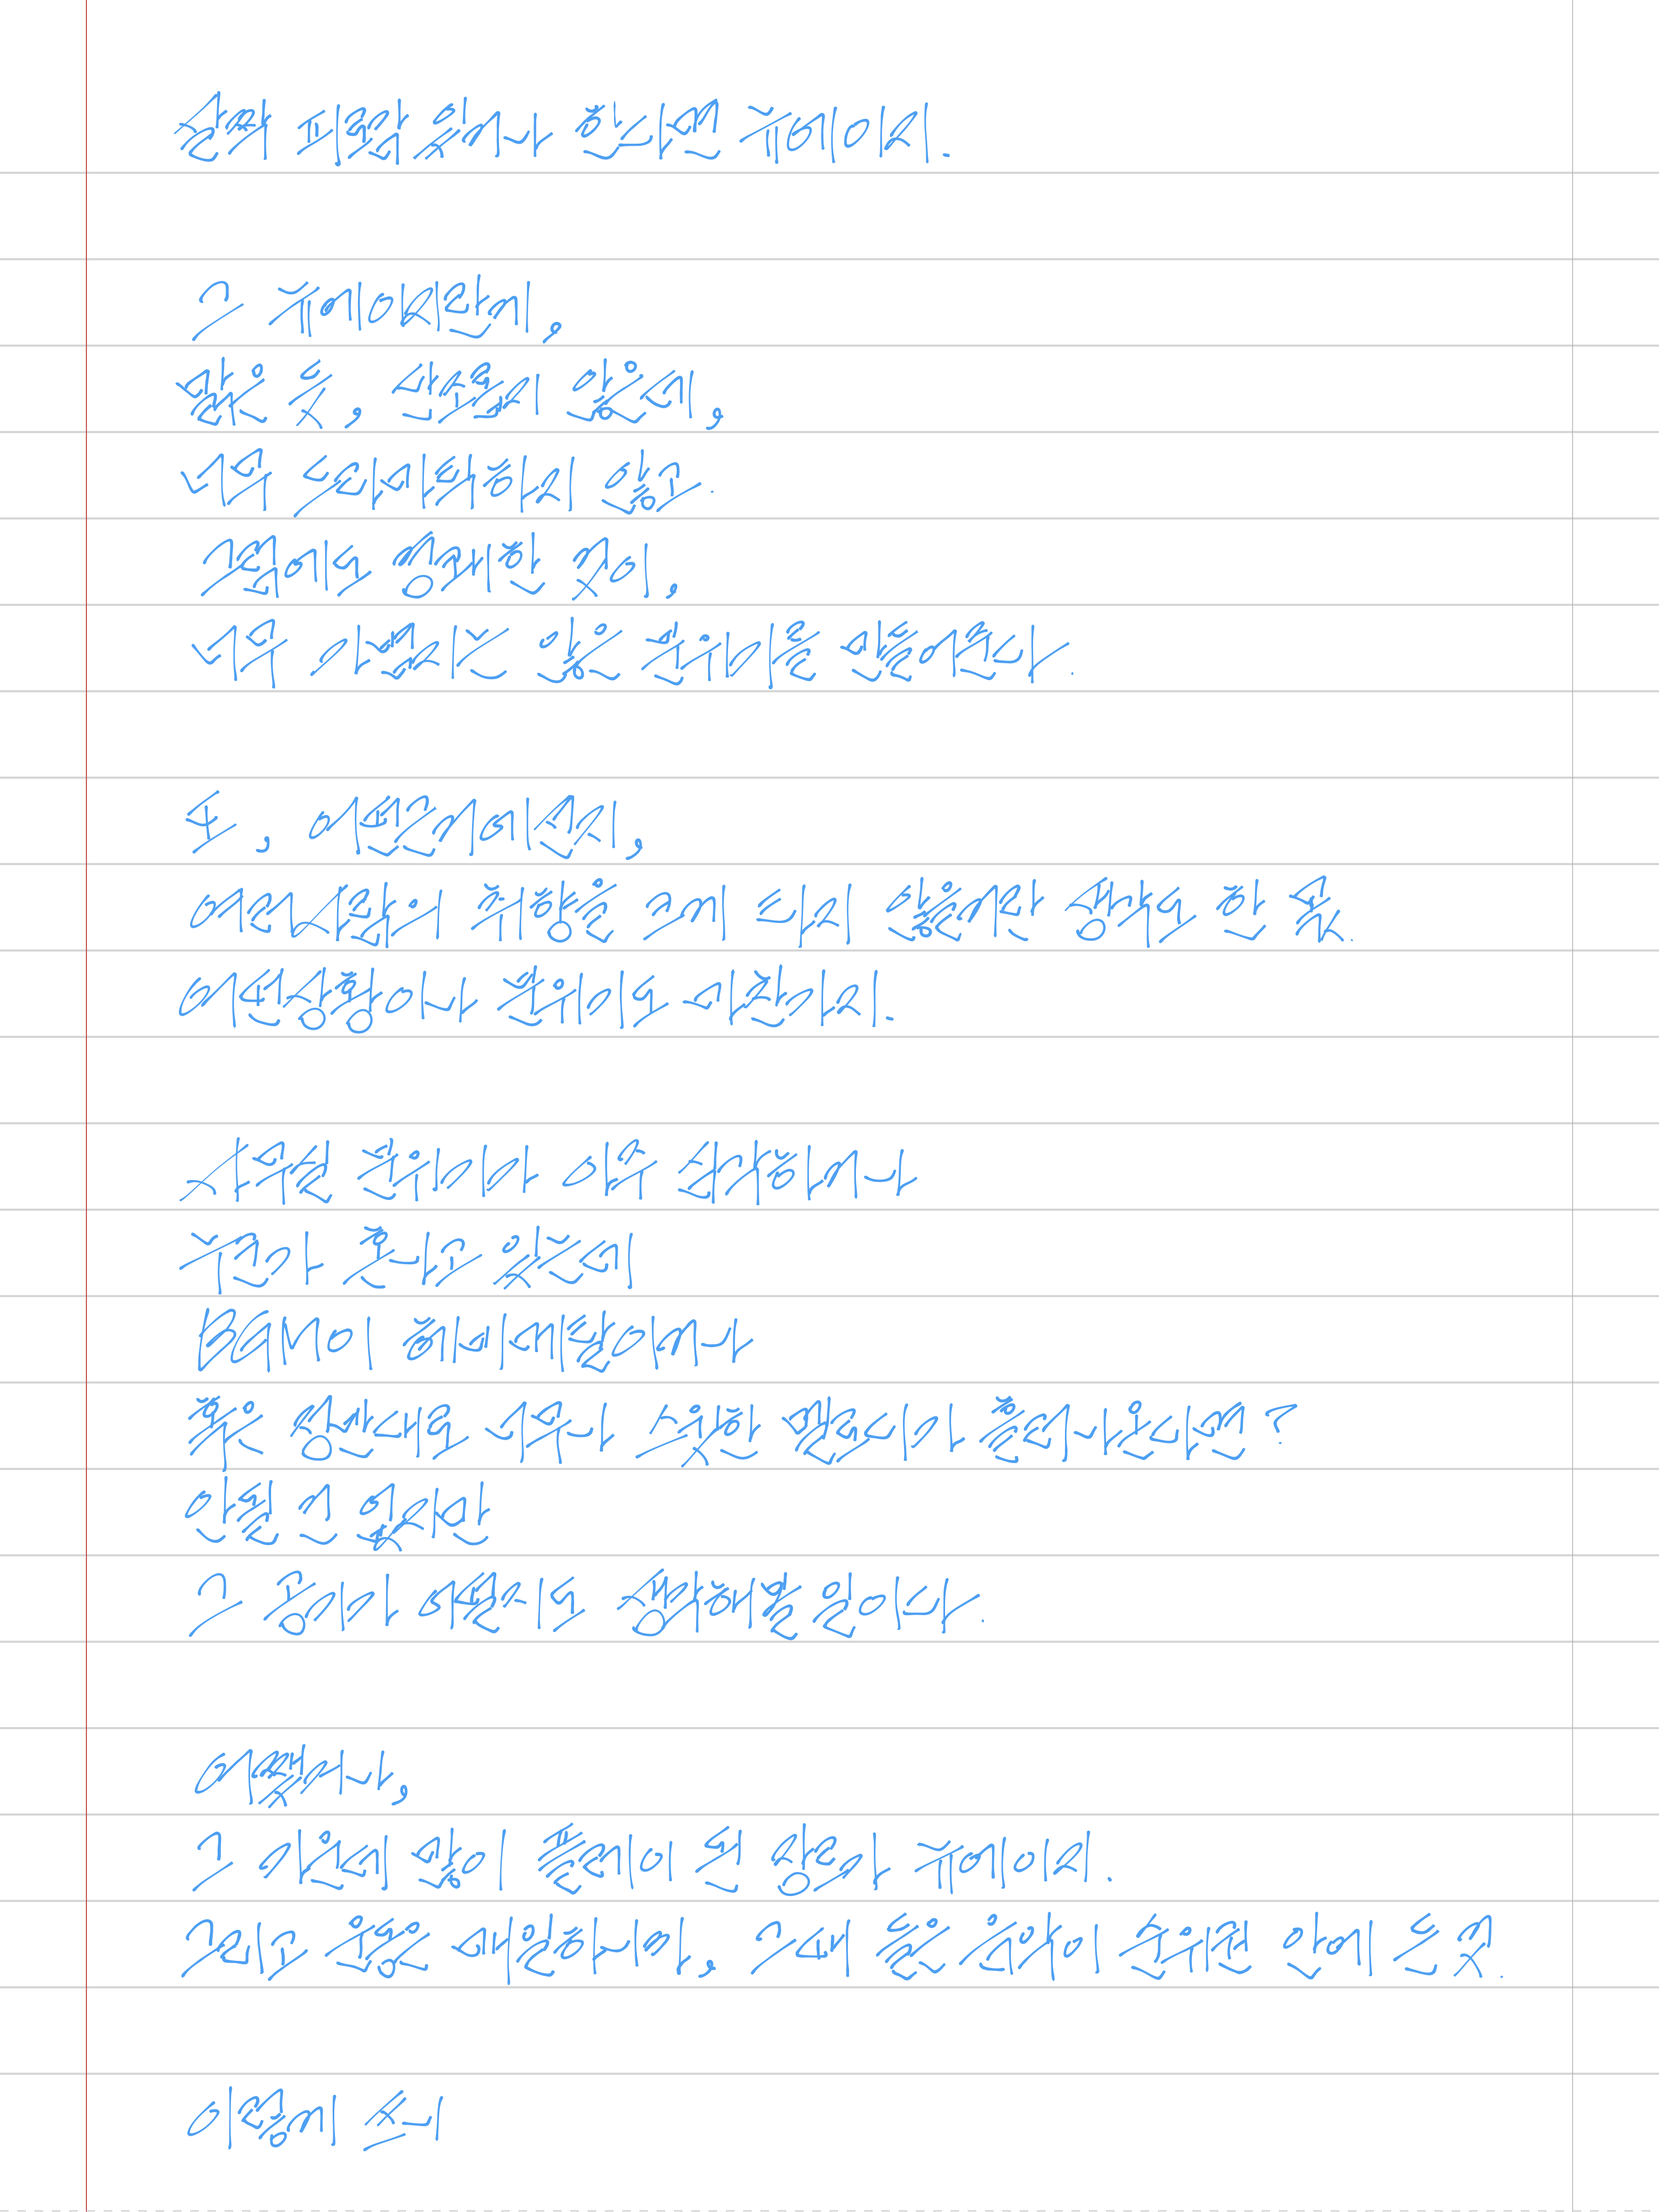 그 뉴에이지란게,
밝은 듯, 산뜻하지 않은데,
너무 드라마틱하지 않고.
그럼에도 경쾌한 것이,
너무 가볍지는 않은 분위기를 만들어준다.
또, 어떤면에선지,
어떤사람의 취향을 크게 타지 않을거란 생각도 한 듯.
어떤상황이나 분위기도 마찬가지.
사무실 분위기가 아주 심각하거나
누군가 혼나고 있는데
BGM이 헤비메탈이거나
혹은 장난대로 너무나 스윗한 멜로디가 흘러나온다면?
안될 건 없지만
그 공기가 어떨지도 생각해볼 일이다.
어쨌거나,
그 가운데 많이 플레이 된 장르가 뉴에이지.
그리고 운좋은 대원하나마, 그때 들은 음악이 순위권 안에 든것.
이렇게 쓰니